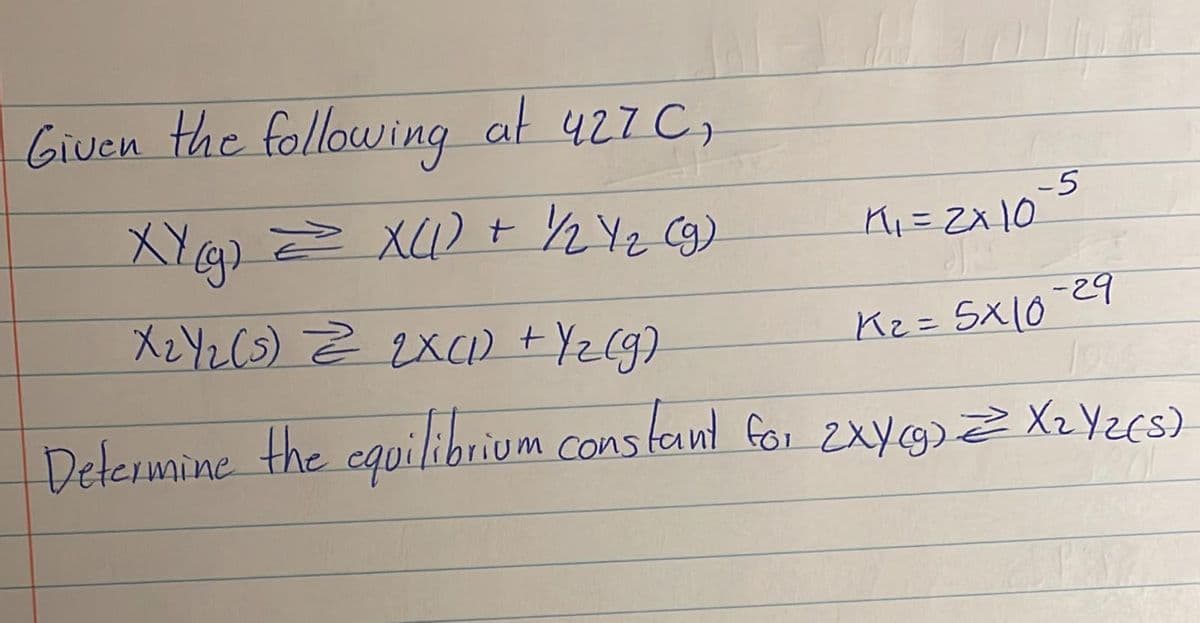 Given the following at 427 C,
XY(g) ⇌ X(l) + 1/2 Y₂ (g) K₁ = 2x10⁻⁵
X₂Y₂(s) ⇌ 2X(l) + Y₂(g) K₂ = 5x10⁻²⁹
Determine the equilibrium constant for 2XY(g) ⇌ X₂Y₂(s)